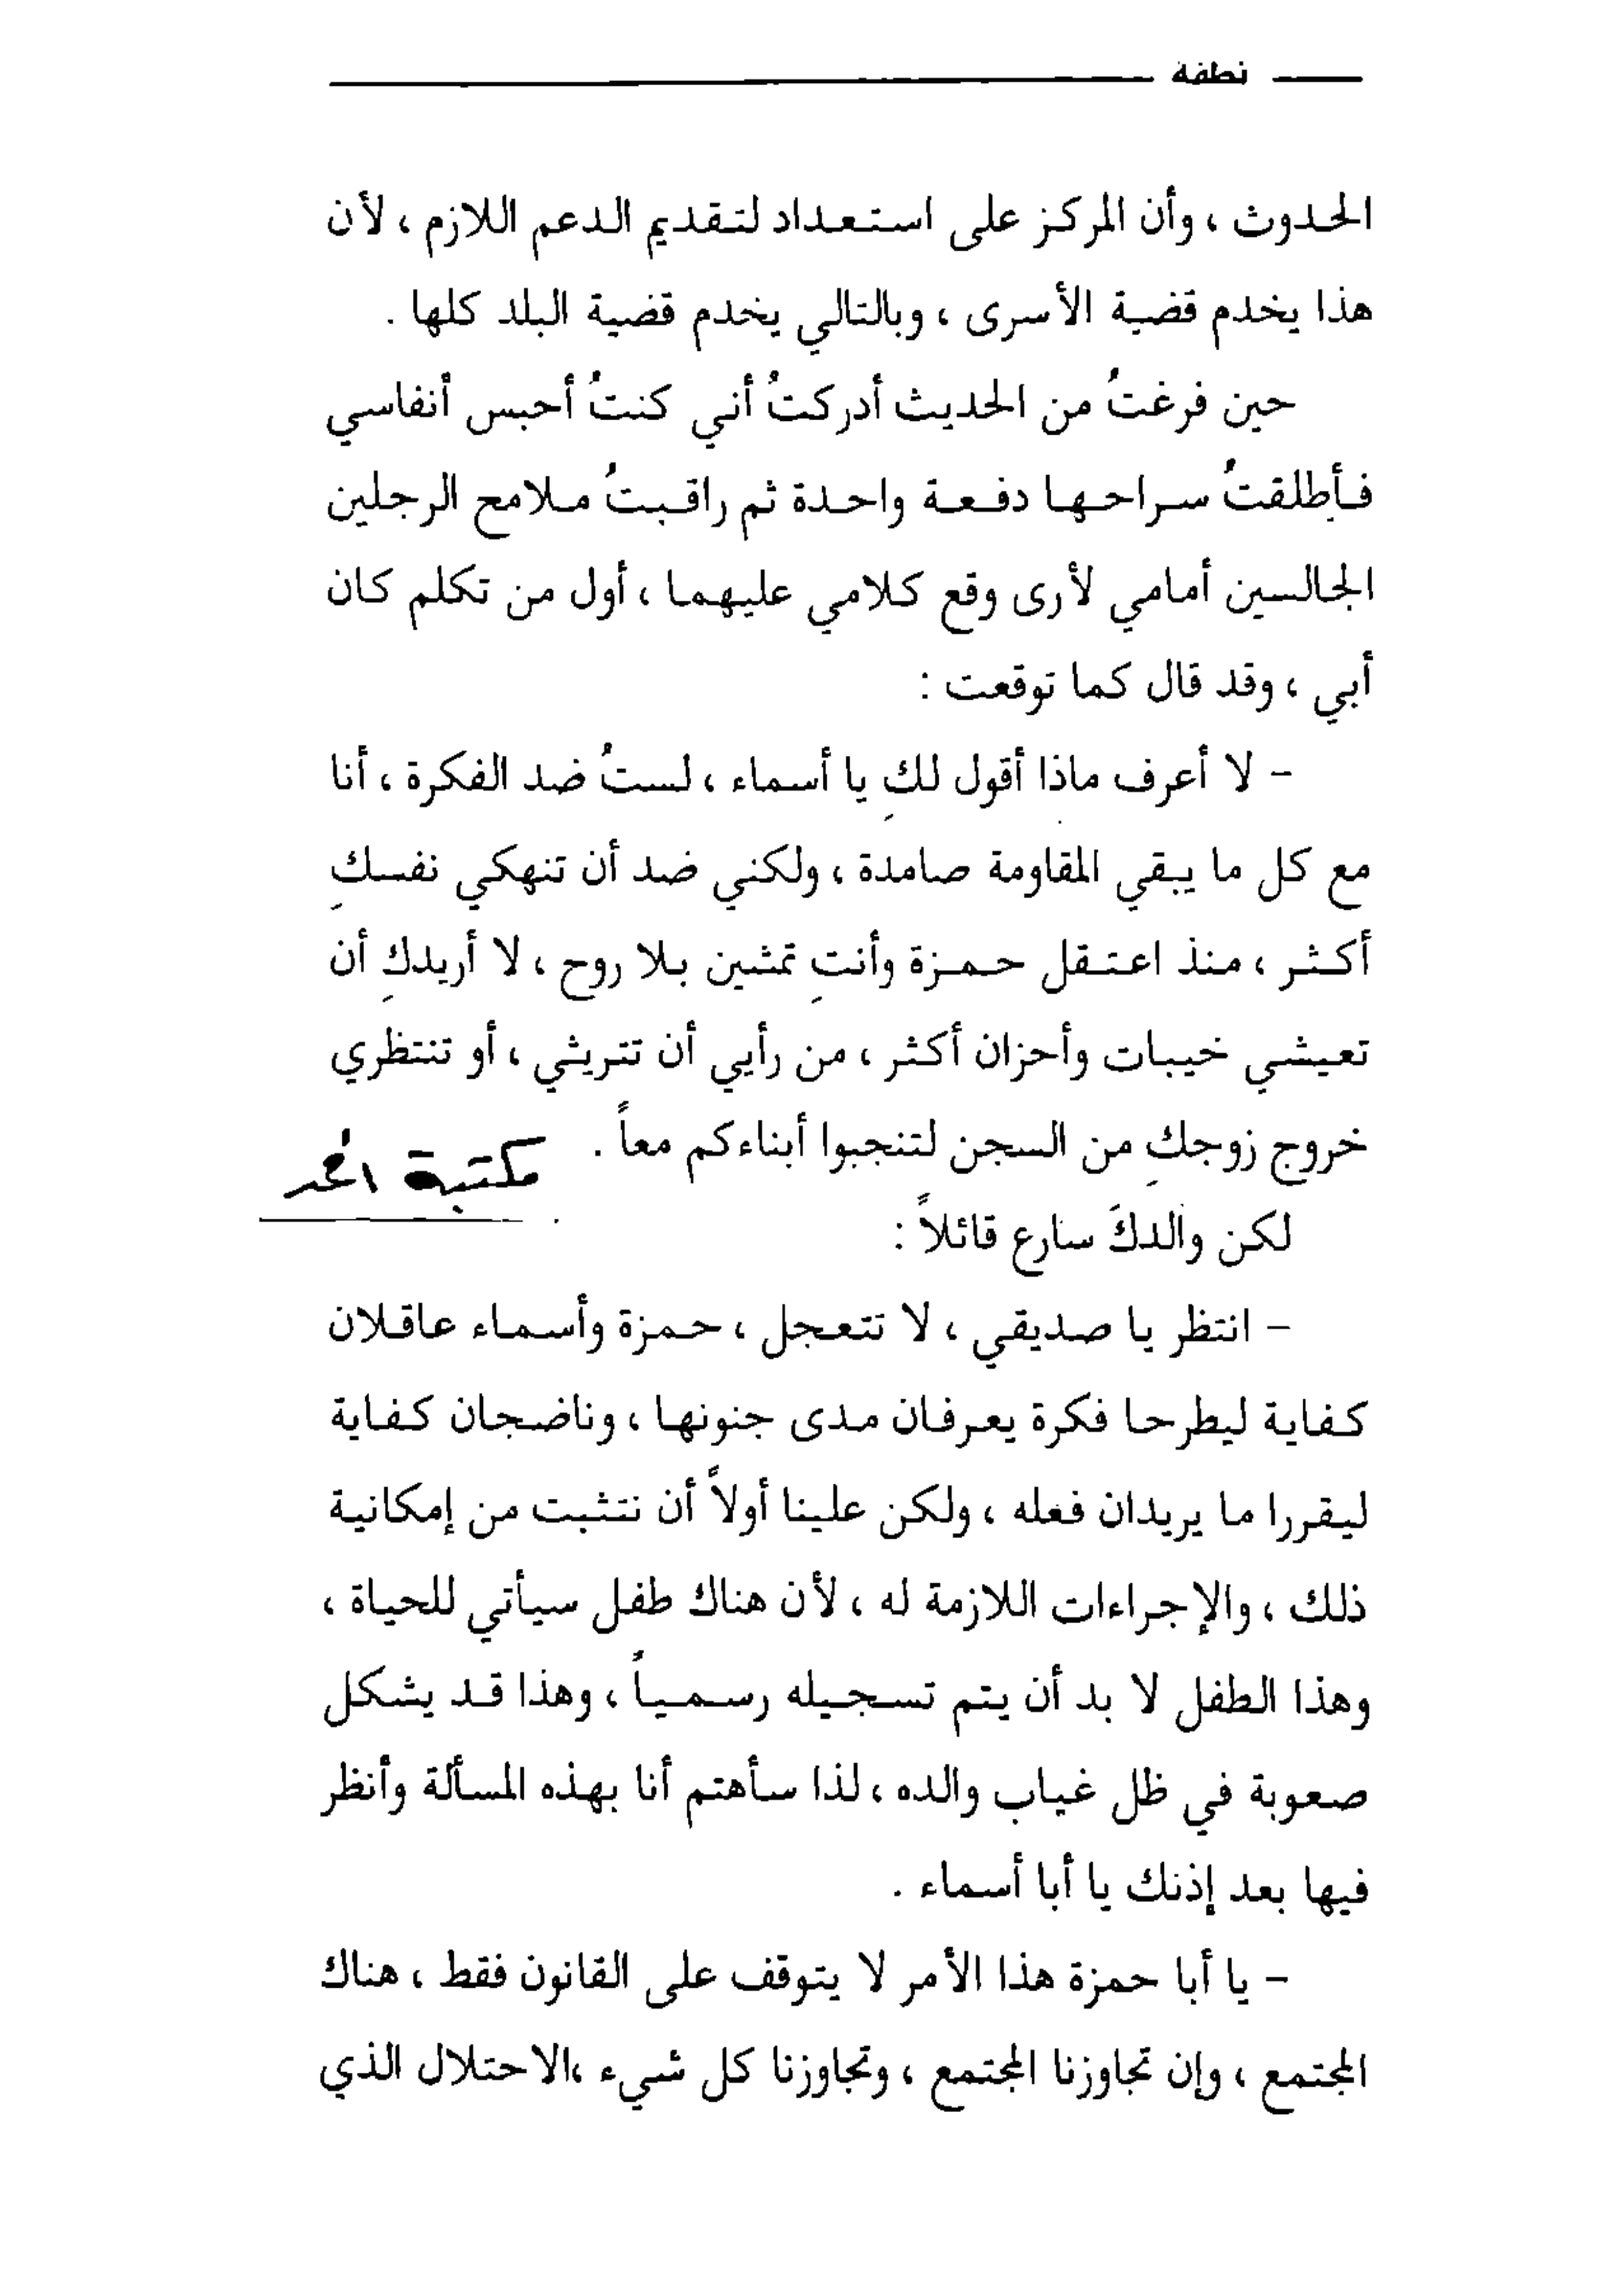 نطفة
الحدوث ، وأن المركز على استعداد لتقديم الدعم اللازم ، لأن
هذا يخدم قضية الأسرى ، وبالتالي يخدم قضية البلد كلها .
حين فرغتُ من الحديث أدركتُ أني كنتُ أحبس أنفاسي
فأطلقتُ سراحها دفعة واحدة ثم راقبتُ ملامح الرجلين
الجالسين أمامي لأرى وقع كلامي عليهما ، أول من تكلم كان
أبي ، وقد قال كما توقعت :
- لا أعرف ماذا أقول لكِ يا أسماء ، لستُ ضد الفكرة ، أنا
مع كل ما يبقي المقاومة صامدة ، ولكني ضد أن تنهكي نفسكِ
أكثر ، منذ اعتقل حمزة وأنتِ تمشين بلا روح ، لا أريدكِ أن
تعيشي خيبات وأحزان أكثر ، من رأيي أن تتريثي ، أو تنتظري
خروج زوجكِ من السجن لتنجبوا أبناءكم معاً .
مكتبة
لكن والدكَ سارع قائلاً :
- انتظر يا صديقي ، لا تتعجل ، حمزة وأسماء عاقلان
كفاية ليطرحا فكرة يعرفان مدى جنونها ، وناضجان كفاية
ليقررا ما يريدان فعله ، ولكن علينا أولاً أن نتثبت من إمكانية
ذلك ، والإجراءات اللازمة له ، لأن هناك طفل سيأتي للحياة ،
وهذا الطفل لا بد أن يتم تسجيله رسمياً ، وهذا قد يشكل
صعوبة في ظل غياب والده ، لذا سأهتم أنا بهذه المسألة وأنظر
فيها بعد إذنك يا أبا أسماء .
- يا أبا حمزة هذا الأمر لا يتوقف على القانون فقط ، هناك
المجتمع ، وإن تجاوزنا المجتمع ، وتجاوزنا كل شيء ،الاحتلال الذي